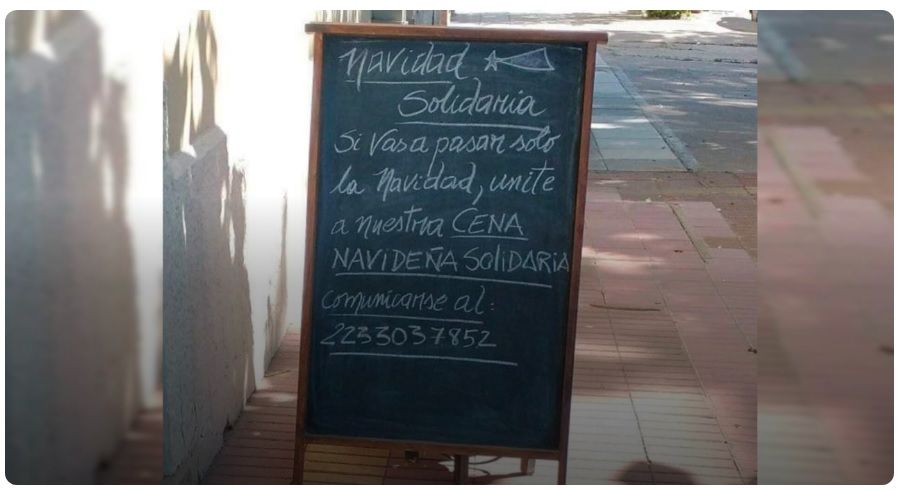 Navidad
Solidaria
Si vas a pasar solo
la Navidad, unite
a nuestra CENA
NAVIDEÑA SOLIDARIA
comunicarse al:
2233037852